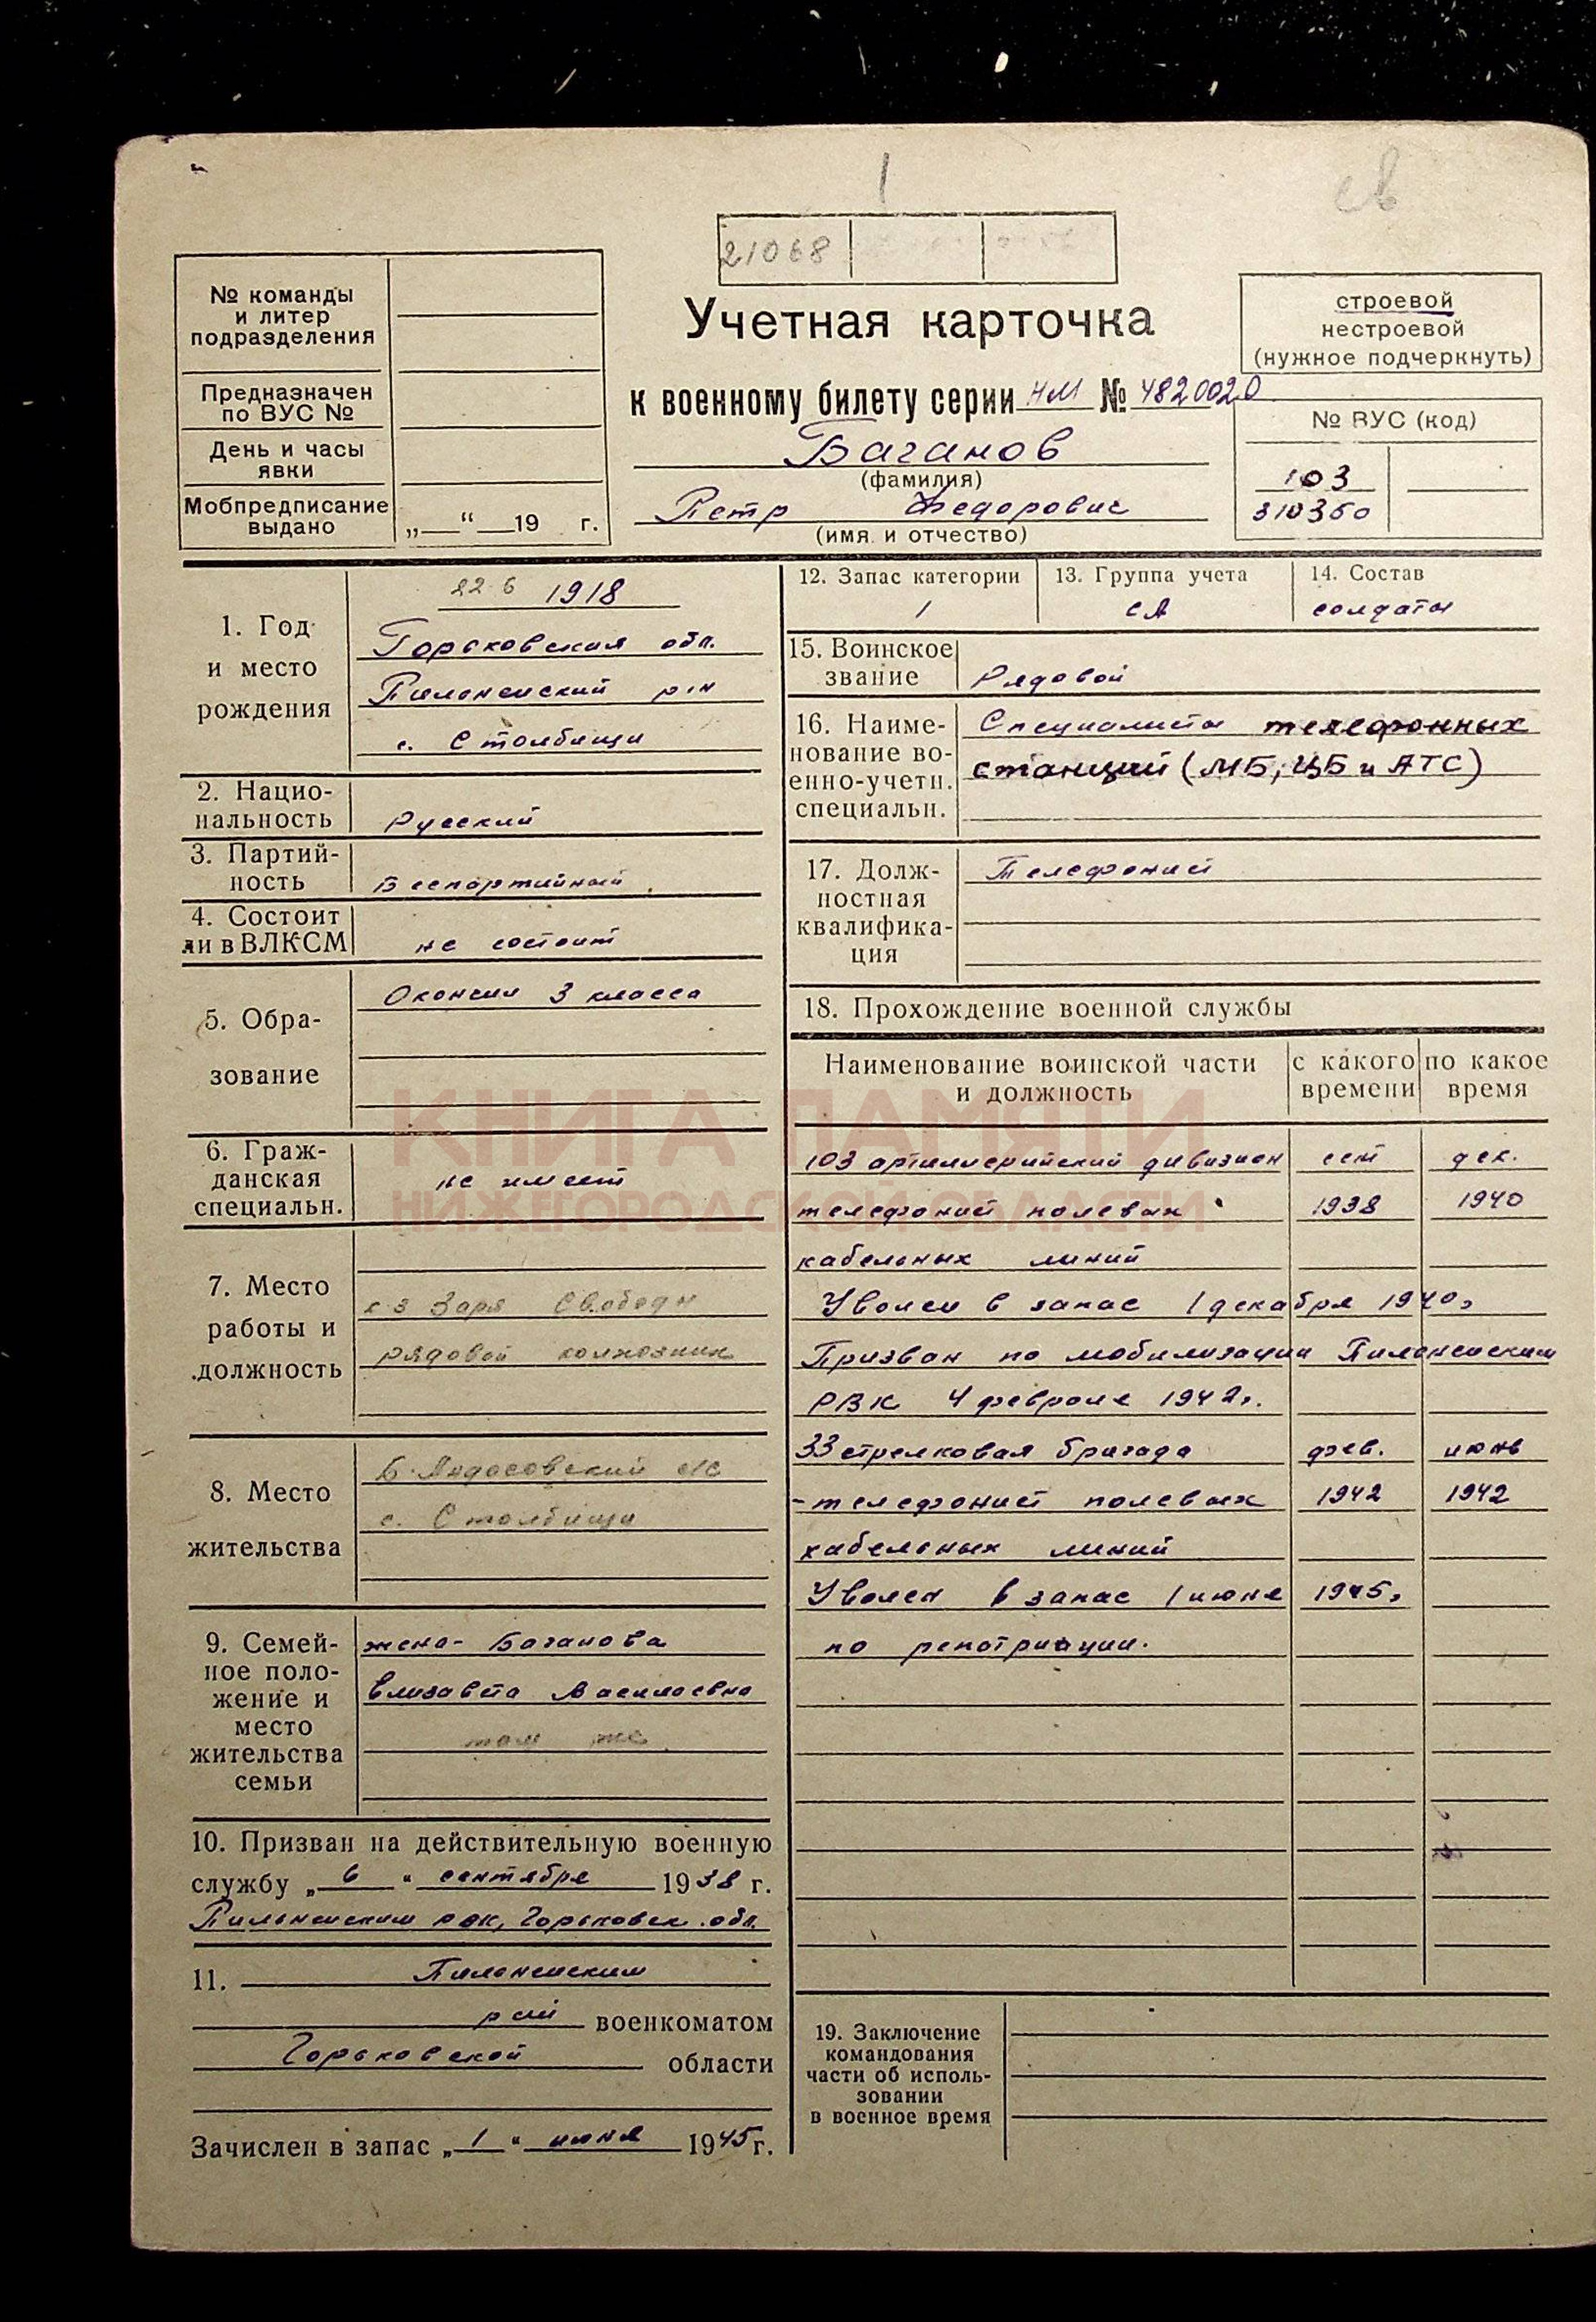 21068
№ команды
и литер
подразделения
Предназначен
по ВУС №
День и часы
явки
Мобпредписание
выдано
„—“ —19 г.
Учетная карточка
к военному билету серии НМ № 4820020
Баганов
(фамилия)
Петр Федорович
(имя и отчество)
строевой
нестроевой
(нужное подчеркнуть)
№ ВУС (код)
103
310350
1. Год
и место
рождения
22.6 1918
Горьковская обл.
Пильненский р-н
с. Столбищи
2. Нацио-
нальность
Русский
3. Партий-
ность
Беспартийный
4. Состоит
ли в ВЛКСМ
не состоит
5. Обра-
зование
Окончил 3 класса
6. Граж-
данская
специальн.
не имеет
7. Место
работы и
должность
к-з Заря Свободы
рядовой колхозник
8. Место
жительства
Б. Андосовский с/с
с. Столбищи
9. Семей-
ное поло-
жение и
место
жительства
семьи
жена - Баганова
Елизавета Васильевна
там же
10. Призван на действительную военную
службу „ 6 “ сентября 1938 г.
Пильненским рвк, Горьковск. обл.
11. Пильненским
рай военкоматом
Горьковской области
Зачислен в запас „ 1 “ июня 1945 г.
12. Запас категории
1
13. Группа учета
СА
14. Состав
солдаты
15. Воинское
звание
Рядовой
16. Наиме-
нование во-
енно-учетн.
специальн.
Специалисты телефонных
станций (МБ, ЦБ и АТС)
17. Долж-
ностная
квалифика-
ция
Телефонист
18. Прохождение военной службы
Наименование воинской части
и должность
с какого
времени
по какое
время
103 артиллерийский дивизион сент дек.
телефонист полевых 1938 1940
кабельных линий
Уволен в запас 1 декабря 1940г
Призван по мобилизации Пильненским
РВК 4 февраля 1942г.
33 стрелковая бригада фев. июнь
- телефонист полевых 1942 1942
кабельных линий
Уволен в запас 1 июня 1945г
по репатриации.
19. Заключение
командования
части об исполь-
зовании
в военное время
КНИГА ПАМЯТИ
НИЖЕГОРОДСКОЙ ОБЛАСТИ